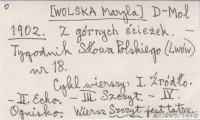 [WOLSKA Maryla] D-Mol
1902. Z górnych ścieżek. –
Tygodnik Słowa Polskiego (Lwów)
nr 18.
Cykl wierszy: I. Źródło.
– II. Echo. – III. Szczyt. – IV.
Ognisko. Wiersz Szczyt jest